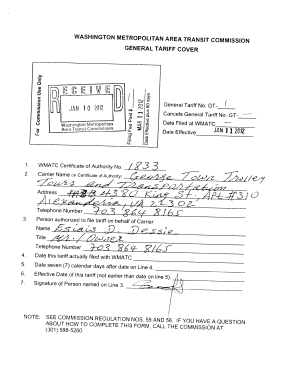 WASHINGTON METROPOLITAN AREA TRANSIT COMMISSION
GENERAL TARIFF COVER
For Commission Use Only
RECEIVED
JAN 10 2012
Washington Metropolitan
Area Transit Commission
Filing Fee Paid $
MAR 11 2012
Date Effective plus 60 days
General Tariff No. GT- 1
Cancels General Tariff No. GT- -
Date Filed at WMATC
Date Effective JAN 11 2012
1. WMATC Certificate of Authority No. 1833
2. Carrier Name on Certificate of Authority: George Town Trolley
Tours and Transportation
Address 4380 King St. Apt #310
Alexanderia, VA 22302
Telephone Number 703 864 8165
3. Person authorized to file tariff on behalf of Carrier
Name Esiais D. Dessie
Title Mr. / Owner
Telephone Number 703 864 8165
4. Date this tariff actually filed with WMATC
5. Date seven (7) calendar days after date on Line 4.
6. Effective Date of this tariff (not earlier than date on line 5)
7. Signature of Person named on Line 3.
NOTE: SEE COMMISSION REGULATION NOS. 55 AND 56. IF YOU HAVE A QUESTION
ABOUT HOW TO COMPLETE THIS FORM, CALL THE COMMISSION AT
(301) 588-5260.